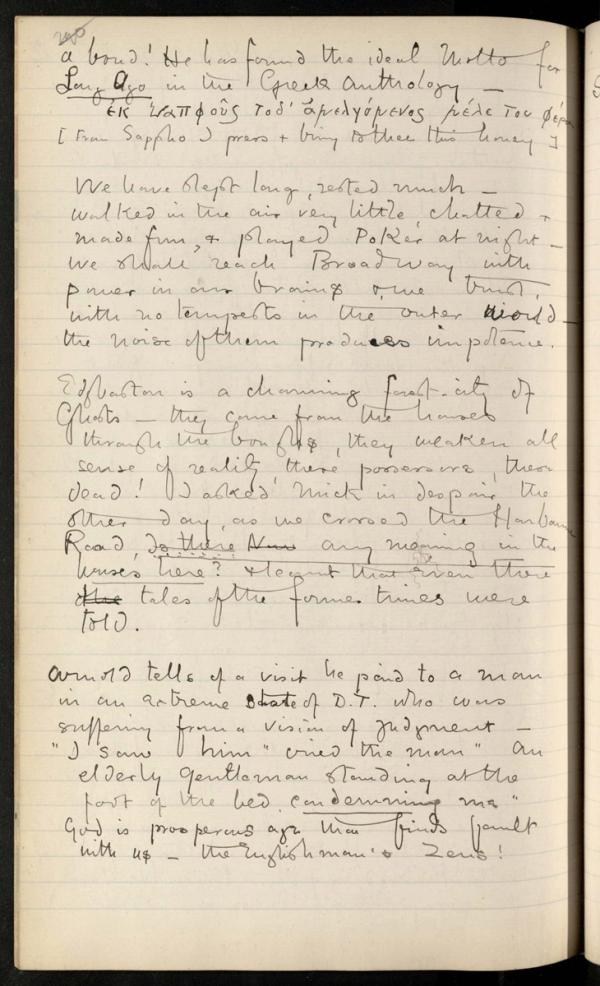 a bond! He has found the ideal Motto for
Long Ago in the Greek Anthology —
ἐκ Σαπφοῦς τοδ' ἀμελγόμενος μέλι τοι φέρω
[From Sappho I press & bring to thee this honey]
We have slept long, rested much —
walked in the air very little, chatted &
made fun, & played Poker at night —
We shall reach Broadway with
power in our brains & we trust,
with no tempests in the outer world —
the noise of them produces impotence.
Edgbaston is a charming forest-city of
Ghosts — they come from the houses
through the boughs, they weaken all
sense of reality these possessors, these
dead! I asked Mick in despair the
other day, as we crossed the Harborne
Road, Is there any meaning in the
houses here? & learnt that even there
the tales of the former times were
told.
Arnold tells of a visit he paid to a man
in an extreme state of D.T. who was
suffering from a vision of Judgment —
"I saw him" cried the man "an
elderly gentleman standing at the
foot of the bed condemning me"
God is prosperous age that finds fault
with us — the Englishman's Zeus!